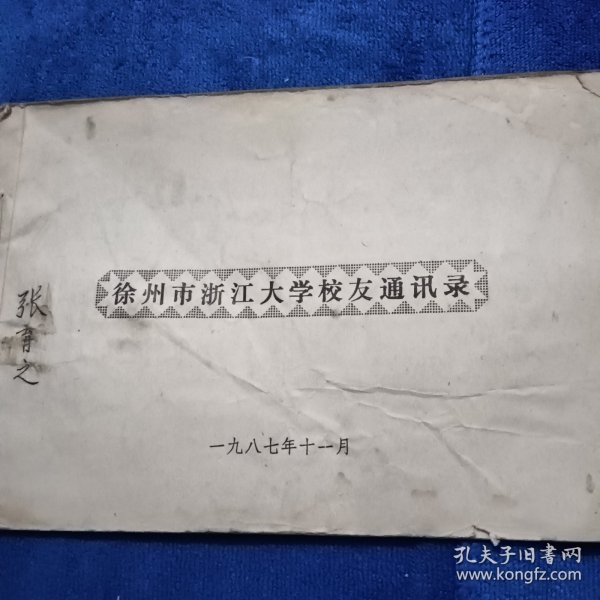 徐州市浙江大学校友通讯录
张育之
一九八七年十一月
孔夫子旧书网
www.kongfz.com